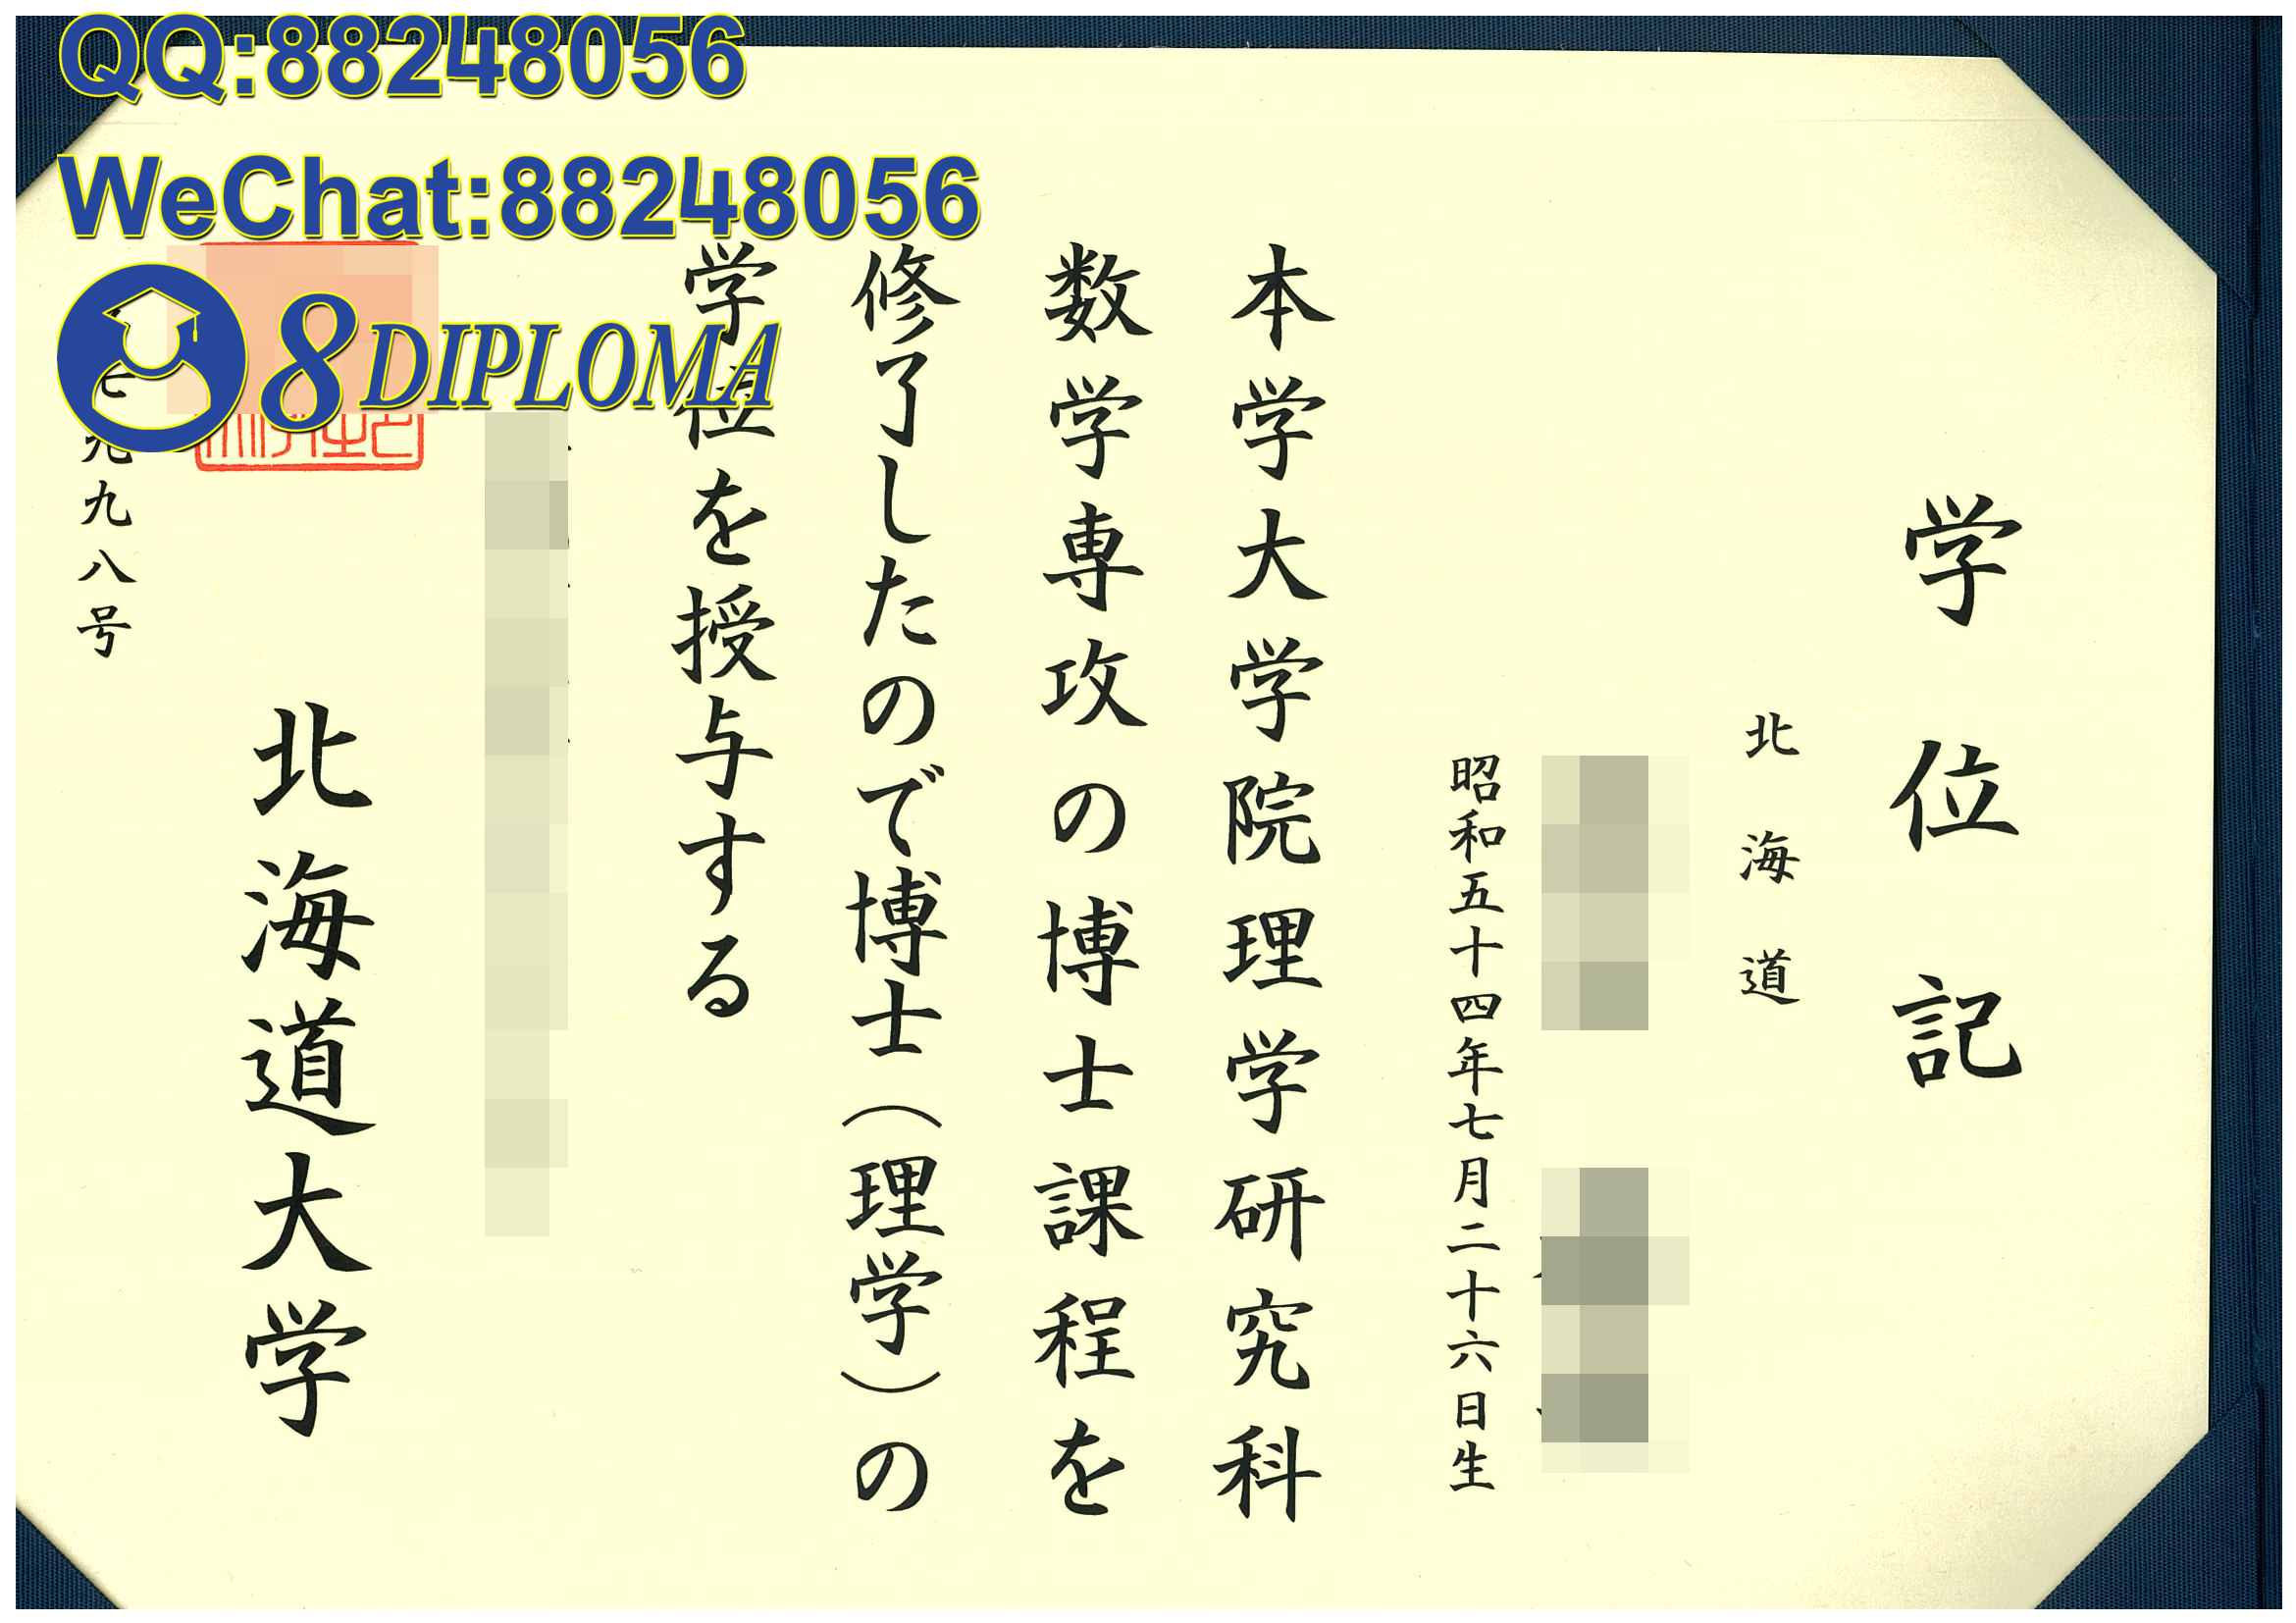 QQ:88248056
WeChat:88248056
8DIPLOMA
学位記
北海道
昭和五十四年七月二十六日生
本学大学院理学研究科
数学専攻の博士課程を
修了したので博士(理学)の
学位を授与する
北海道大学
九九八号